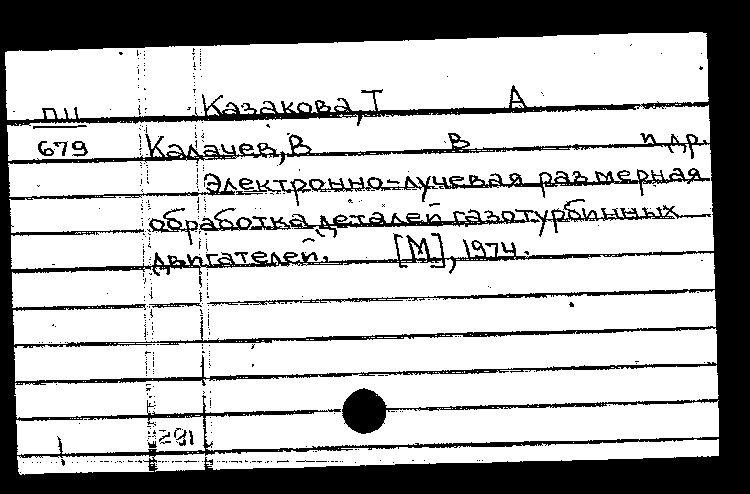 П11 Казакова, Т А
679 Калачев, В В и др.
Электронно-лучевая размерная
обработка деталей газотурбинных
двигателей. [М], 1974.